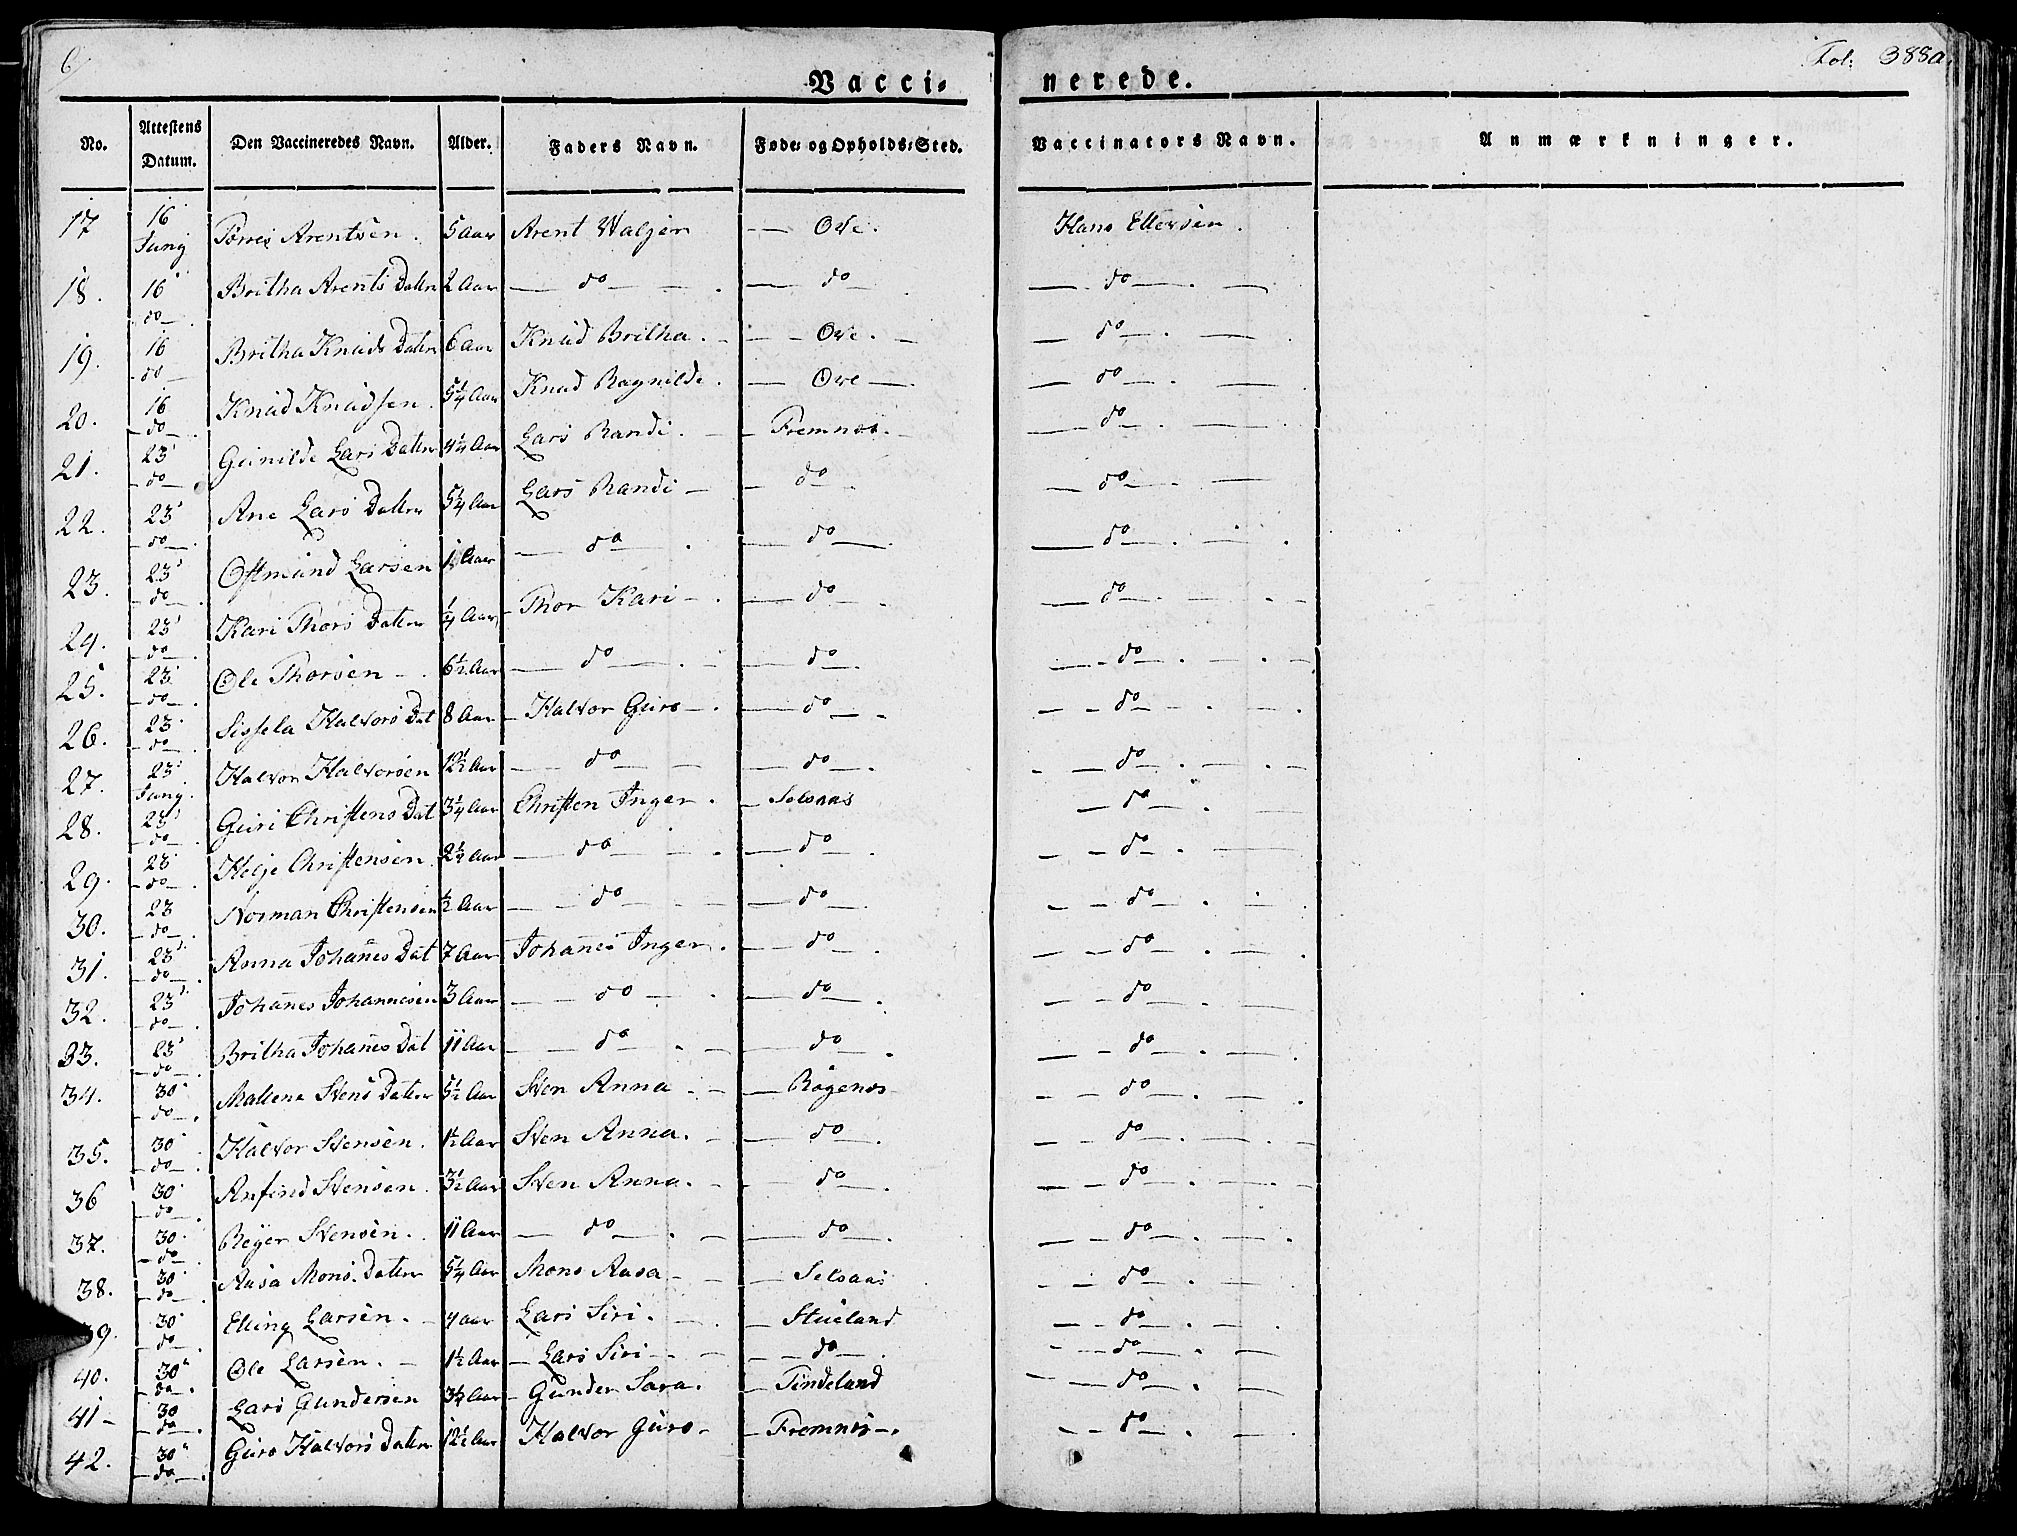 6
Fol: 388a.
Vacci- nerede.
No. Attestens Datum. Den Vaccineredes Navn. Alder. Faders Navn. Føde- og Opholds-Sted. Vaccinators Navn. Anmærkninger.
17 16 Junj Arentsen. 5 Aar Arent Valjer — Ove. Hans Ellevsen.
18. 16 do Britha Arents Datter 2 Aar — do — — do — do —
19. 16 do Britha Knuds Datter 6 Aar Knud Britha. — Ove. — do —
20. 16 do Knud Knudsen. 5¼ Aar Knud Ragnilde. — Ove — — do —
21. 23 do Gunilde Lars Datter 4¼ Aar Lars Randi. — Fremnes. — do —
22. 23 do Ane Lars Datter Aar Lars Randi — do — — do —
23. 23 do Ostmund Larsen Aar — do — — do — — do —
24. 23 do Kari Thors Datter ¼ Aar Thor Kari — — do — — do —
25. 23 do Ole Thorsen — 6½ Aar — do — — do — — do —
26. 23 do Sissela Halvors Dat 8 Aar Halvor Guro — — do — — do —
27. 23 Junj. Halvor Halvorsen 12½ Aar — do — — do — — do —
28. 23 do Guri Christens Dat 3¼ Aar Christen Inger. — Selsaas — do —
29. 23 do Helje Christensen 2¼ Aar — do — — do — — do —
30. 23 do Norman Christensen ½ Aar — do — — do — — do —
31. 23 do Anna Johanes Dat 7 Aar Johanes Inger. — do — — do —
32. 23 do Johanes Johannesen 3 Aar — do — — do — — do —
33. 23 do Britha Johanes Dat 11 Aar — do — — do — — do —
34. 30 do Mallene Stens Datter 5½ Aar Sten Anna — Røgenes — do —
35. 30 do Halvor Stensen. 1½ Aar Sten Anna. — do — — do —
36 30 do Anfind Stensen. 3½ Aar Sten Anna. — do — — do —
37. 30 do Reyer Stensen. 11 Aar — do — — do — — do —
38. 30 do Aasa Mons. Datter 5¼ Aar Mons Aasa — Selsaas — do —
39. 30 do Elling Larsen. 4 Aar Lars Siri. — Stueland — do —
40. 30 do Ole Larsen. — 1½ Aar — Lars Siri — — do — — do —
41 — 30 do Lars Gundersen Aar — Gunder Sara. — Tindeland — do —
42. 30 do Guro Halvors Datter 12½ Aar Halvor Guro — — Fremnes — do —